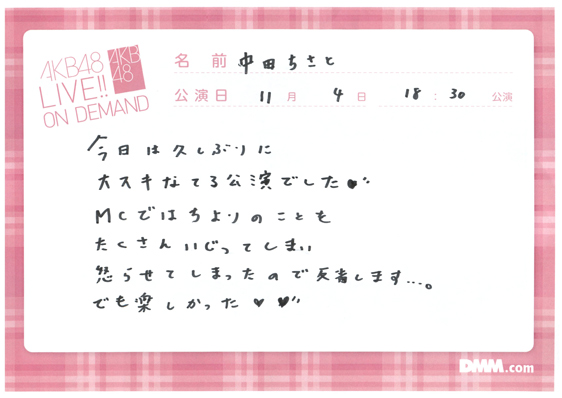 AKB48
LIVE!!
ON DEMAND
AKB
48
名前 中田ちさと
公演日 11月 4日 18:30 公演
今日は久しぶりに
大スキなてる公演でした♥
MCではちよりのことも
たくさんいじってしまい
怒らせてしまったので反省します...。
でも楽しかった♥♥
DMM.com